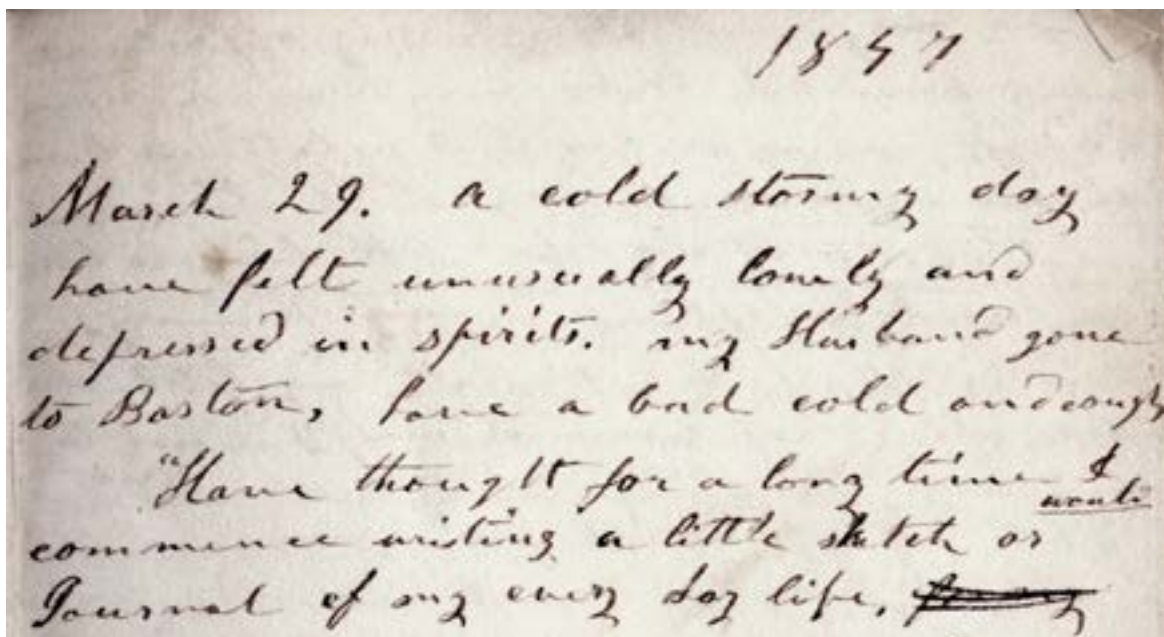 1857
March 29. A cold stormy day
have felt unusually lonely and
depressed in spirits. my Husband gone
to Boston, have a bad cold and cough
"Have thought for a long time I
would
commence writing a little sketch or
Journal of my every day life,